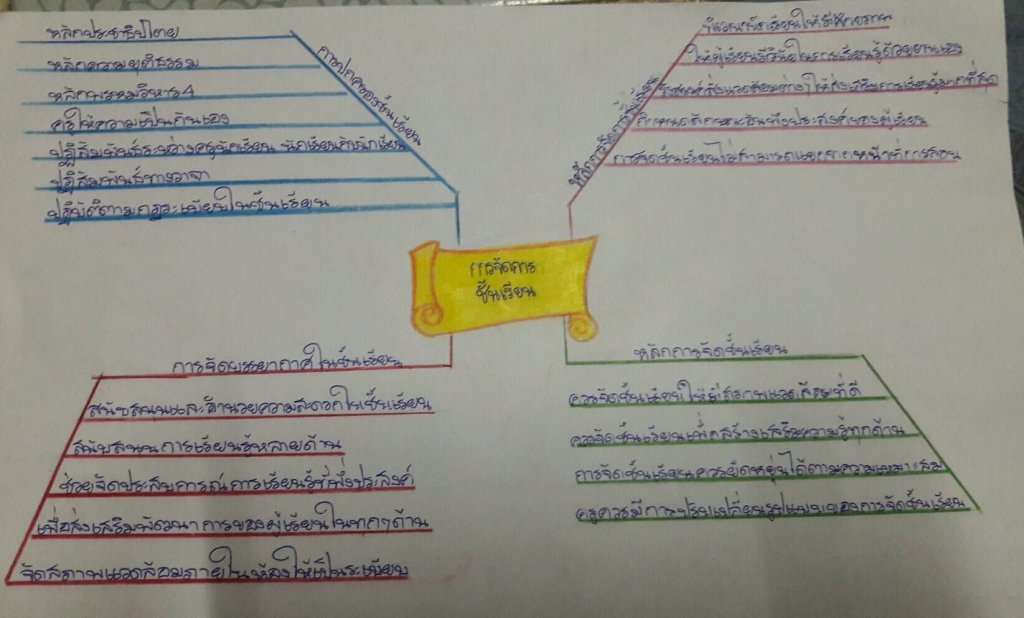 การจัดการ
ชั้นเรียน
การปกครองชั้นเรียน
หลักประชาธิปไตย
หลักความยุติธรรม
หลักพรหมวิหาร 4
ครูให้ความเป็นกันเอง
ปฏิสัมพันธ์ระหว่างครูนักเรียน นักเรียนกับนักเรียน
ปฏิสัมพันธ์ทางวาจา
ปฏิบัติตามกฎระเบียบในชั้นเรียน
ให้ผู้เรียนมีวินัยในการเรียนรู้ด้วยตนเอง
ให้ส่งเสริมการเรียนรู้มากที่สุด
การจัดชั้นเรียนไม่สามารถแยกจากหน้าที่การสอน
การจัดบรรยากาศในชั้นเรียน
สนับสนุนและอำนวยความสะดวกในชั้นเรียน
สนับสนุนการเรียนรู้หลายด้าน
ช่วยจัดประสบการณ์การเรียนรู้ที่พึงประสงค์
เพื่อส่งเสริมพัฒนาการของผู้เรียนในทุกๆด้าน
จัดสภาพแวดล้อมภายในห้องให้เป็นระเบียบ
หลักการจัดชั้นเรียน
ควรจัดชั้นเรียนให้มีสภาพแวดล้อมที่ดี
ควรจัดชั้นเรียนเพื่อสร้างเสริมความรู้ทุกด้าน
การจัดชั้นเรียนควรยืดหยุ่นได้ตามความเหมาะสม
ครูควรมีการปรับเปลี่ยนรูปแบบของการจัดชั้นเรียน